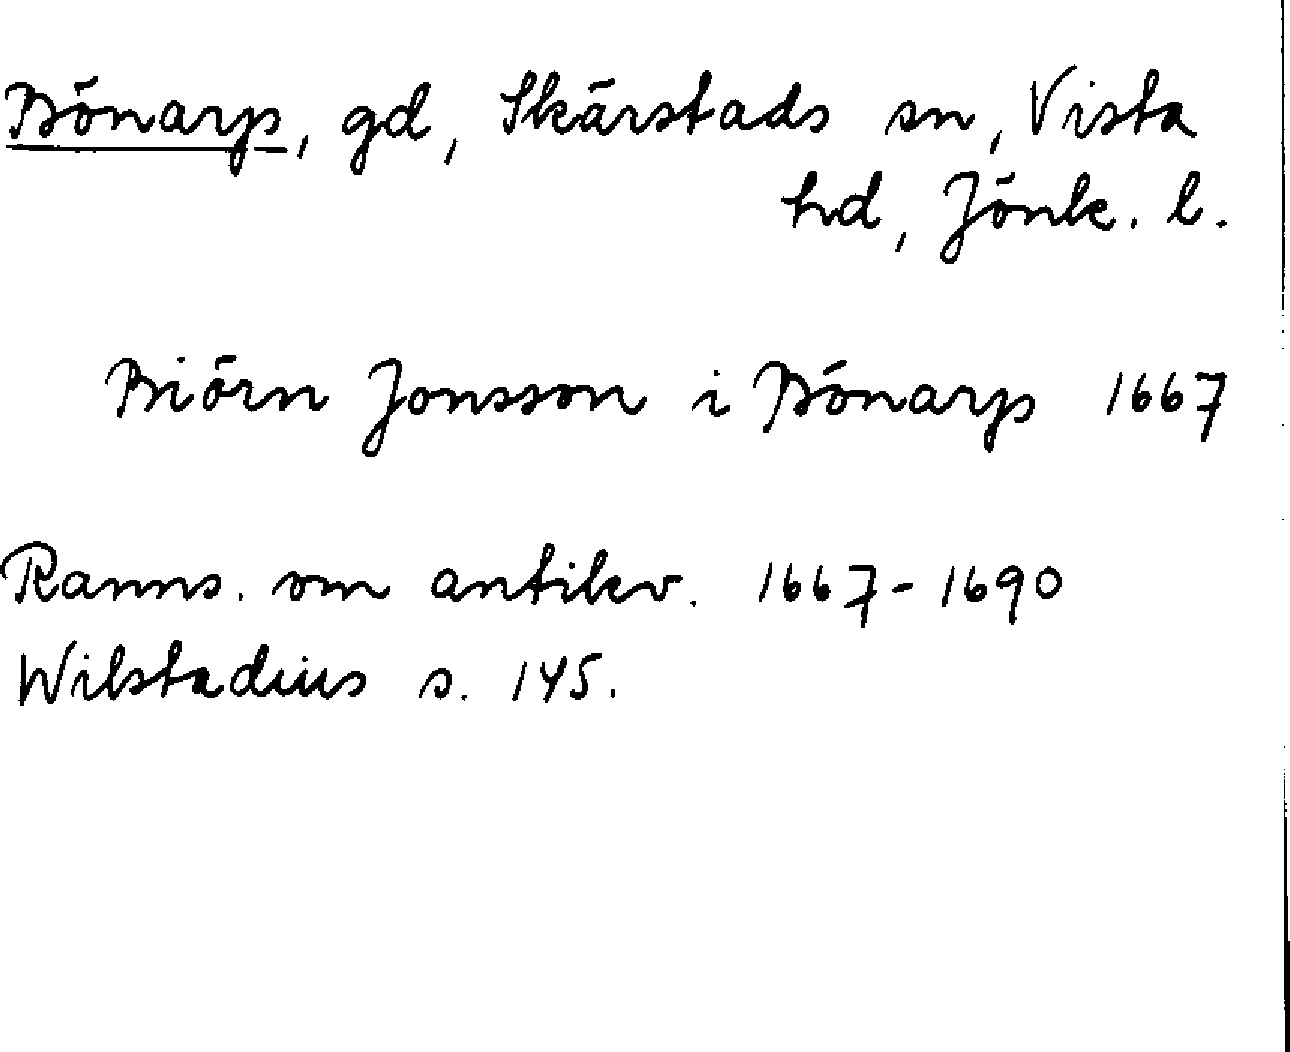 Bönarp, gd, Skärstads sn, Vista
hd, Jönk. l.
Biörn Jonsson i Bónarp 1667
Ranns. om antikv. 1667-1690
Wilstadius s. 145.